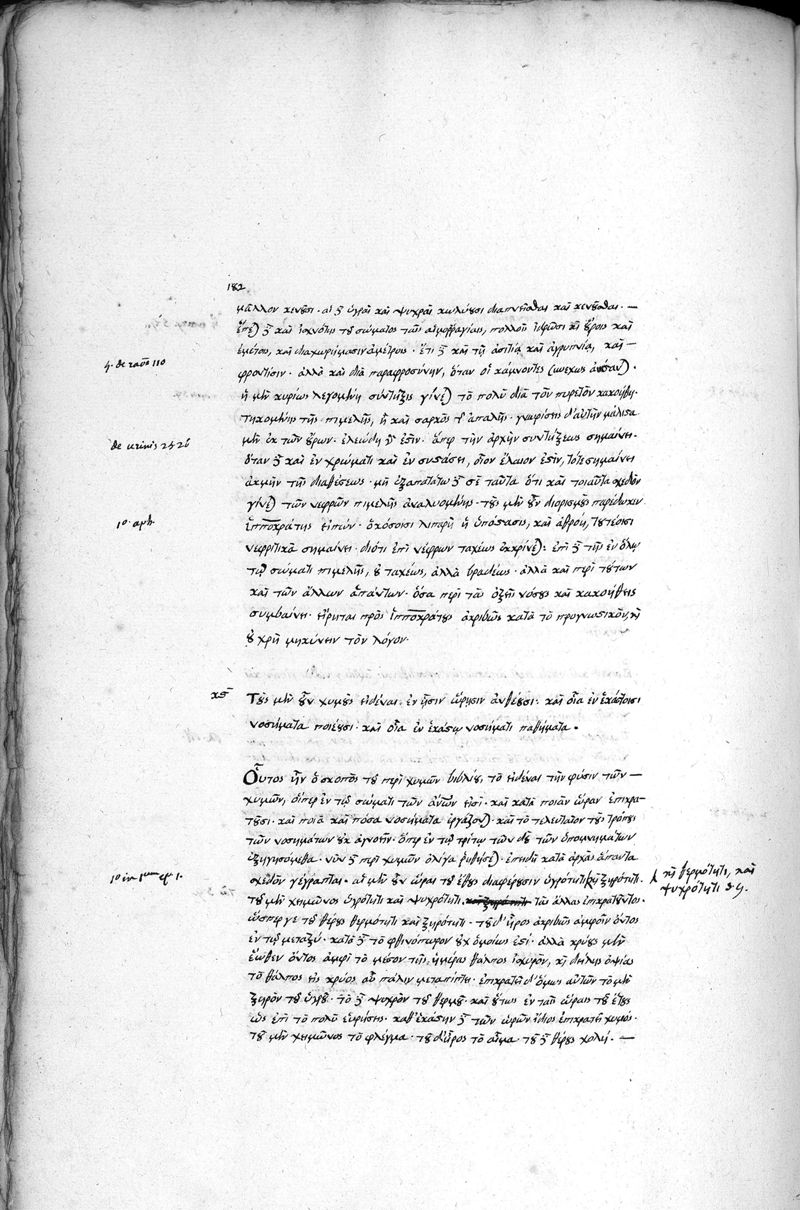 182
μᾶλλον κενοῦσι· αἱ δὲ ὑγραὶ καὶ ψυχραὶ κωλύουσι διαπνεῖσθαι καὶ κενοῦσθαι· —
ἕπεται δὲ καὶ ἰσχνότης τοῦ σώματος ταῖς αἱμορραγίαις, πολλοῖς ἱδρῶσι καὶ οὔροις καὶ
ἐμέτοις, καὶ διαχωρήμασιν ἀμέτροις· ἔτι δὲ καὶ τῇ ἀσιτίᾳ καὶ ἀγρυπνίᾳ, καὶ —
4. de 110
φροντίσιν· ἀλλὰ καὶ διὰ παραφροσύνην, ὅταν οἱ κάμνοντες συνεχῶς
ἡ μὲν κυρίως λεγομένη σύντηξις γίνεται τὸ πολὺ διὰ τὸν πυρετὸν κακοήθη·
τηκομένης τῆς πιμελῆς, ἢ καὶ σαρκὸς τῆς ἁπαλῆς· γνωρίσεις δ' αὐτὴν μάλιστα
de urinis 25 26
μὲν ἐκ τῶν οὔρων· ἐλαιώδη γάρ ἐστιν· ἅπερ τὴν ἀρχὴν συντήξεως σημαίνει·
ὅταν δὲ καὶ ἐν χρώματι καὶ ἐν συστάσει, οἷον ἔλαιον ἐστὶν, τότε σημαίνει
ἀκμὴν τῆς διαθέσεως· μὴ ἐξαπατάτω δὲ σὲ ταῦτα ὅτι καὶ τοιαῦτα σχεδὸν
γίνεται τῶν νεφρῶν πιμελῆς ἀναλυομένης· τοὺς μὲν οὖν διορισμοὺς παρέδωκεν
1º aph.
ἱπποκράτης εἰπών· ὁκόσοισι λιπαρὴ ἡ ὑπόστασις, καὶ ἀθρόη, τουτέοισι
νεφριτικὰ σημαίνει· διότι ἐπὶ νέφρων ταχέως ἐκκρίνεται: ἐπὶ δὲ τῆς ἐν ὅλῳ
τῷ σώματι πιμελῆς, οὐ ταχέως, ἀλλὰ βραδέως· ἀλλὰ καὶ περὶ τούτων
καὶ τῶν ἄλλων ἁπάντων· ὅσα περὶ τὰς ὀξεῖς νόσους καὶ κακοήθεις
συμβαίνει· εἴρηται πρὸς ἱπποκράτους ἀκριβῶς κατὰ τὸ προγνωστικὸν, καὶ
οὐ χρὴ μηκύνειν τὸν λόγον·
κϛ Τοὺς μὲν οὖν χυμοὺς εἰδέναι· ἐν ᾗσιν ὥρῃσιν ἀνθέουσι· καὶ οἷα ἐν ἑκάστοισι
νοσήματα ποιέουσι· καὶ οἷα ἐν ἑκάστῳ νοσήματι παθήματα·
Οὗτος ἦν ὁ σκοπὸς τοῦ περὶ χυμῶν βιβλίου, τὸ εἰδέναι τὴν φύσιν τῶν —
χυμῶν, οἵπερ ἐν τῷ σώματι τῶν ἀνων εἰσί· καὶ κατὰ ποίαν ὥραν ἐπικρα-
τοῦσι· καὶ ποῖα καὶ πόσα νοσήματα ἐργάζονται· καὶ τὸ τελευταῖον τοὺς τρόπους
τῶν νοσημάτων οὐκ ἀγνοεῖν· ὅπερ ἐν τῷ τρίτῳ τῶν δὲ τῶν ὑπομνημάτων
ἐξηγησόμεθα· νῦν δὲ περὶ χυμῶν ὀλίγα ῥηθήσεται· ἐπειδὴ κατὰ ἀρχὰς ἅπαντα
1º in 1um ep. 1.
σχεδὸν γέγραπται· αἱ μὲν οὖν ὧραι τοῦ ἔτους διαφέρουσιν ὑγρότητι καὶ ξηρότητι·
καὶ θερμότητι, καὶ
ψυχρότητι
τοῦ μὲν χειμῶνος ὑγρότητι καὶ ψυχρότητι τὰς ἄλλας ἐπικρατοῦντος·
ὥσπερ γε τοῦ θέρους θερμότητι καὶ ξηρότητι· τοῦ δ' ἦρος ἀκριβῶς ἀμφοῖν ὄντος
ἐν τῷ μεταξύ· κατὰ δὲ τὸ φθινόπωρον οὐχ ὁμοίως ἐστί· ἀλλὰ κρύους μὲν
ἕωθεν ὄντος ἀμφὶ τὸ μέσον τῆς ἡμέρας θάλπος ἰσχυρὸν, καὶ δείλης ὀψίας
τὸ θάλπος εἰς κρύος αὖ πάλιν μεταπίπτει· ἐπικρατεῖ δ' ὅμως αὐτῶν τὸ μὲν
ξηρὸν τοῦ ὑγροῦ· τὸ δὲ ψυχρὸν τοῦ θερμοῦ· καὶ οὕτως ἐν ταῖς ὥραις τοῦ ἔτους
ὡς ἐπὶ τὸ πολὺ εὑρήσεις· καθ' ἑκάστην δὲ τῶν ὡρῶν ἴδιος ἐπικρατεῖ χυμός·
τοῦ μὲν χειμῶνος τὸ φλέγμα· τοῦ δ' ἦρος τὸ αἷμα τοῦ δὲ θέρους χολή· —